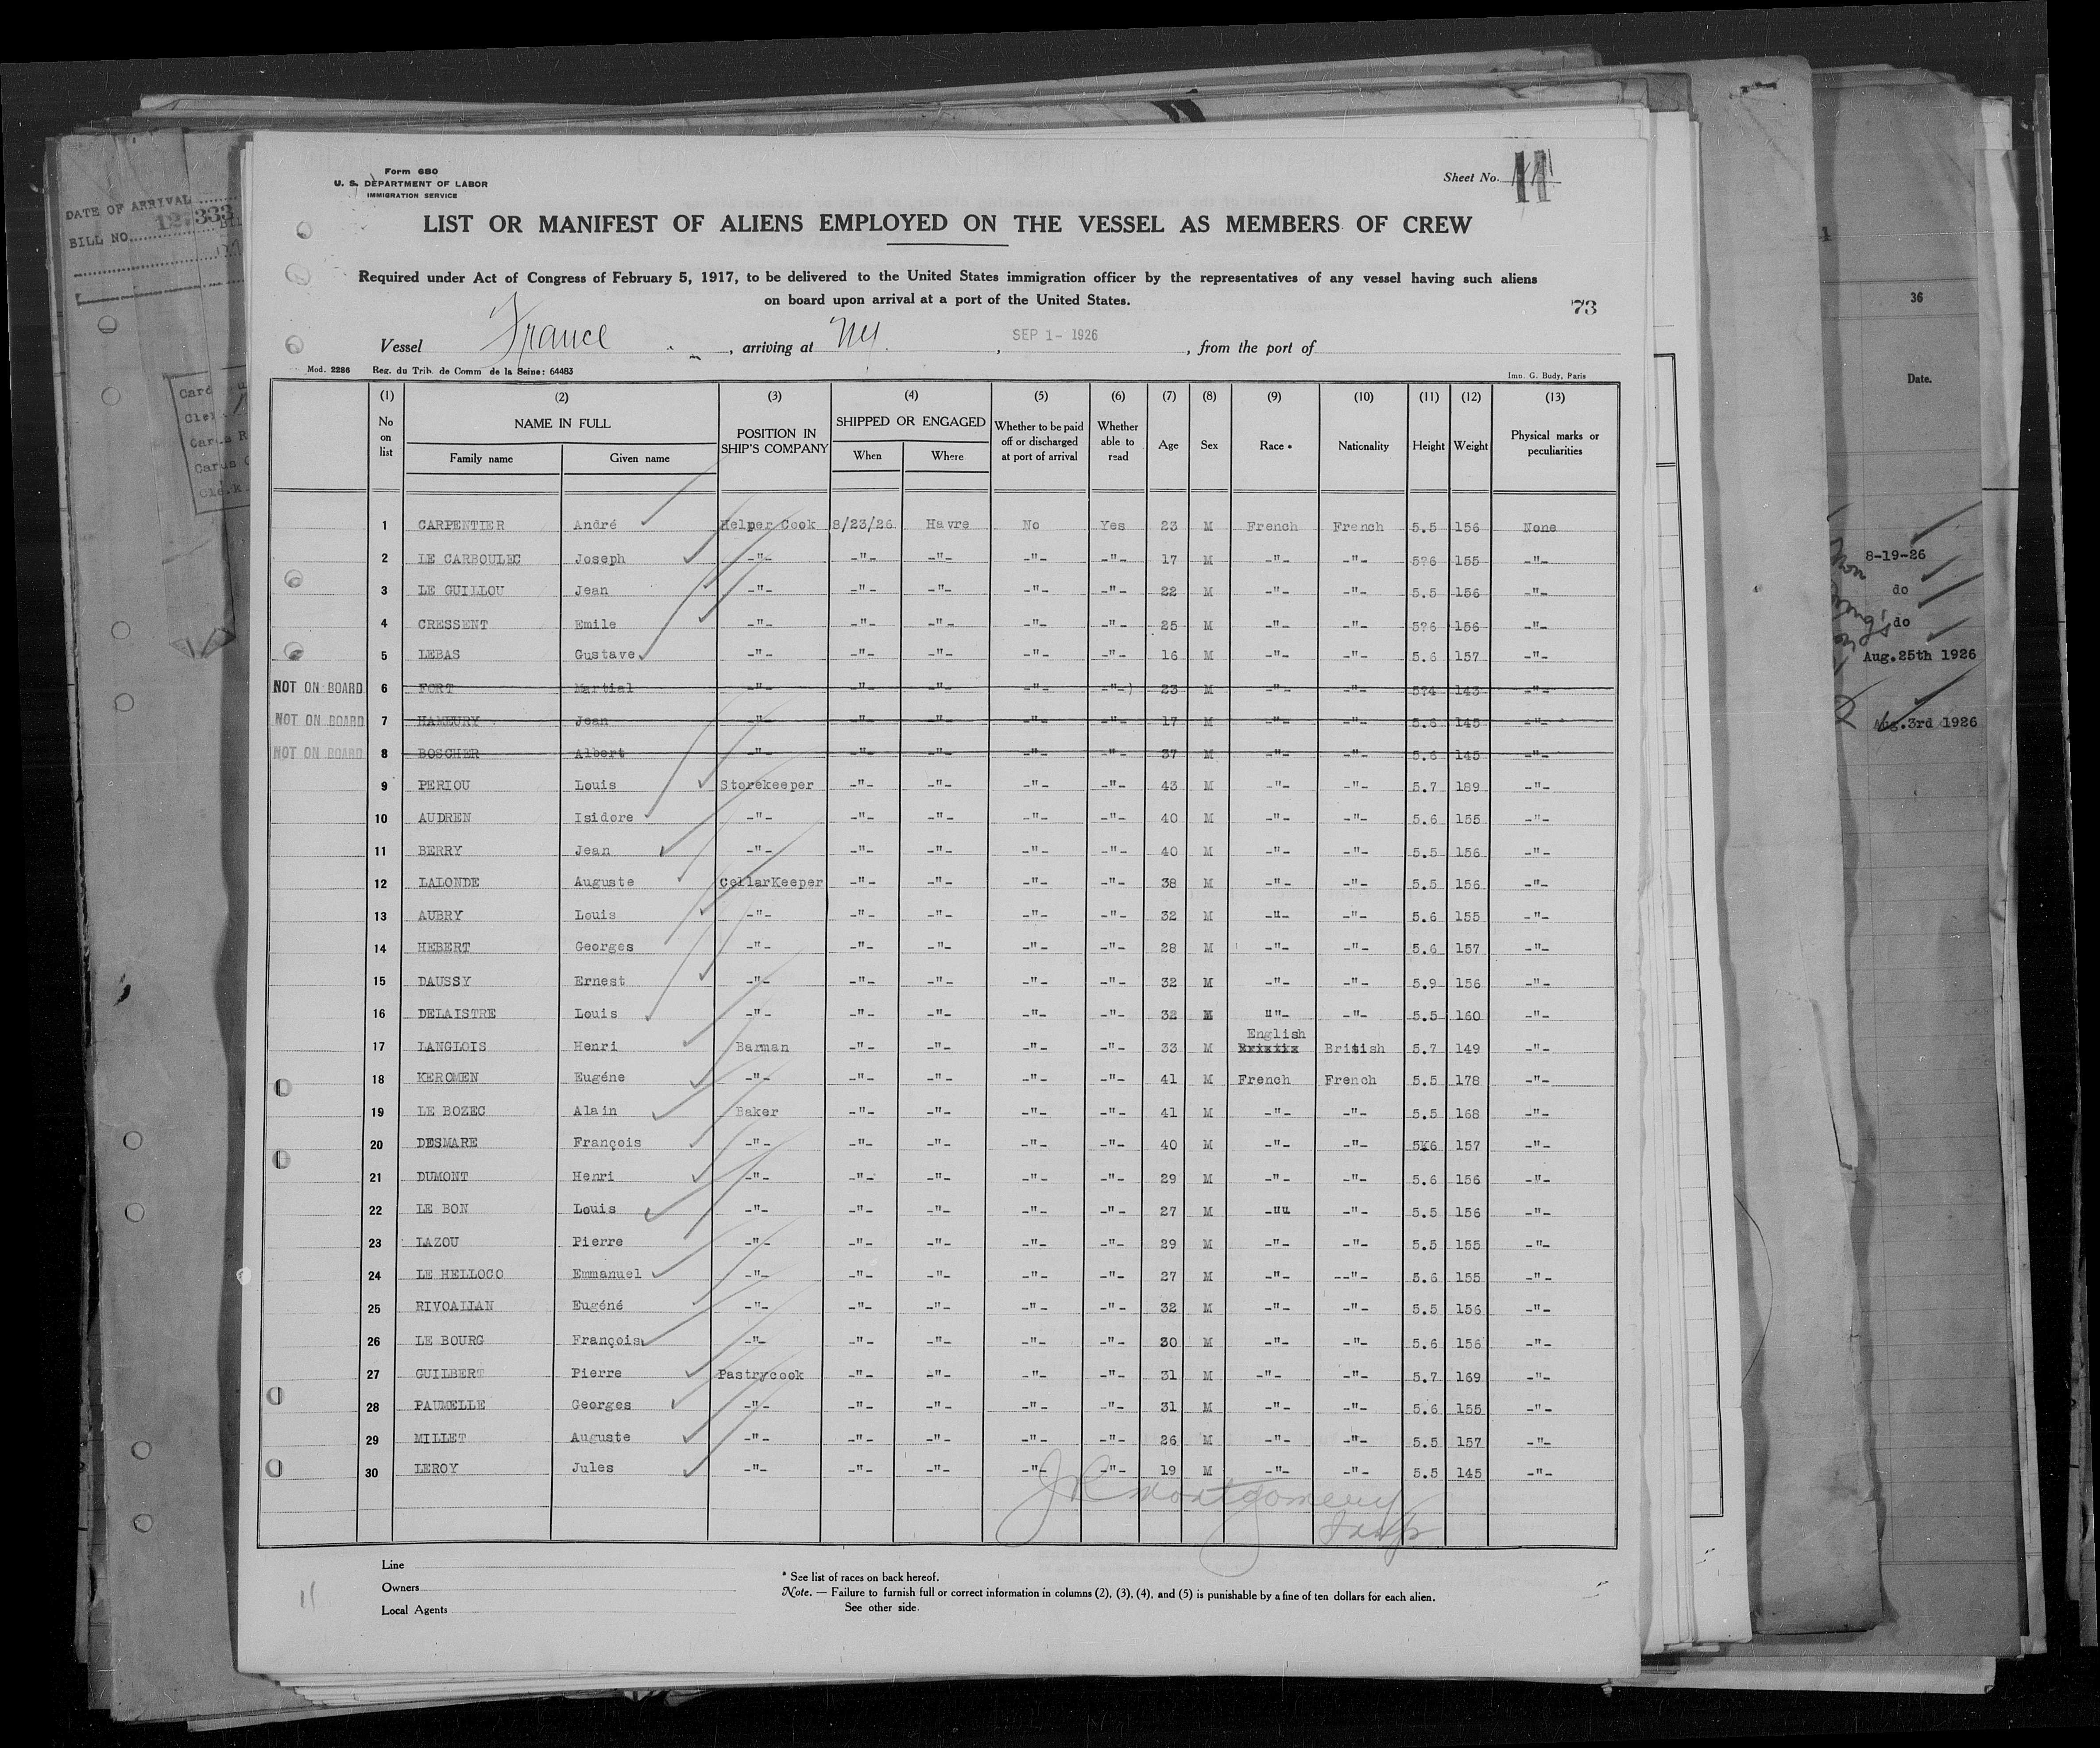 Form 680
U. S. DEPARTMENT OF LABOR
IMMIGRATION SERVICE
Sheet No. 11
DATE OF ARRIVAL
BILL NO. 12,333
LIST OR MANIFEST OF ALIENS EMPLOYED ON THE VESSEL AS MEMBERS OF CREW
Required under Act of Congress of February 5, 1917, to be delivered to the United States immigration officer by the representatives of any vessel having such aliens
on board upon arrival at a port of the United States.
73
Vessel France , arriving at NY. , SEP 1 - 1926 , from the port of
Mod. 2286 Reg. du Trib. de Comm de la Seine: 64483 Imp. G. Budy, Paris
(1) (2) (3) (4) (5) (6) (7) (8) (9) (10) (11) (12) (13)
No on list NAME IN FULL Family name Given name POSITION IN SHIP'S COMPANY SHIPPED OR ENGAGED When Where Whether to be paid off or discharged at port of arrival Whether able to read Age Sex Race * Nationality Height Weight Physical marks or peculiarities
1 CARPENTIER André Helper Cook 8/23/26 Havre No Yes 23 M French French 5.5 156 None
2 LE CARBOULEC Joseph -"- -"- -"- -"- -"- 17 M -"- -"- 5?6 155 -"-
3 LE GUILLOU Jean -"- -"- -"- -"- -"- 22 M -"- -"- 5.5 156 -"-
4 CRESSENT Emile -"- -"- -"- -"- -"- 25 M -"- -"- 5?6 156 -"-
5 LEBAS Gustave -"- -"- -"- -"- -"- 16 M -"- -"- 5.6 157 -"-
NOT ON BOARD 6 FORT Martial -"- -"- -"- -"- -"-) 23 M -"- -"- 5?4 143 -"-
NOT ON BOARD 7 HAMEURY Jean -"- -"- -"- -"- -"- 17 M -"- -"- 5.6 145 -"-
NOT ON BOARD 8 BOSCHER Albert -"- -"- -"- -"- -"- 37 M -"- -"- 5.6 145 -"-
9 PERIOU Louis Storekeeper -"- -"- -"- -"- 43 M -"- -"- 5.7 189 -"-
10 AUDREN Isidore -"- -"- -"- -"- -"- 40 M -"- -"- 5.6 155 -"-
11 BERRY Jean -"- -"- -"- -"- -"- 40 M -"- -"- 5.5 156 -"-
12 LALONDE Auguste CellarKeeper -"- -"- -"- -"- 38 M -"- -"- 5.5 156 -"-
13 AUBRY Louis -"- -"- -"- -"- -"- 32 M -"- -"- 5.6 155 -"-
14 HEBERT Georges -"- -"- -"- -"- -"- 28 M -"- -"- 5.6 157 -"-
15 DAUSSY Ernest -"- -"- -"- -"- -"- 32 M -"- -"- 5.9 156 -"-
16 DELAISTRE Louis -"- -"- -"- -"- -"- 32 M ""- -"- 5.5 160 -"-
English
17 LANGLOIS Henri Barman -"- -"- -"- -"- 33 M British 5.7 149 -"-
18 KEROMEN Eugéne -"- -"- -"- -"- -"- 41 M French French 5.5 178 -"-
19 LE BOZEC Alain Baker -"- -"- -"- -"- 41 M -"- -"- 5.5 168 -"-
20 DESMARE François -"- -"- -"- -"- -"- 40 M -"- -"- 5X6 157 -"-
21 DUMONT Henri -"- -"- -"- -"- -"- 29 M -"- -"- 5.6 156 -"-
22 LE BON Louis -"- -"- -"- -"- -"- 27 M -"" -"- 5.5 156 -"-
23 LAZOU Pierre -"- -"- -"- -"- -"- 29 M -"- -"- 5.5 155 -"-
24 LE HELLOCO Emmanuel -"- -"- -"- -"- -"- 27 M -"- --"- 5.6 155 -"-
25 RIVOALLAN Eugéné -"- -"- -"- -"- -"- 32 M -"- -"- 5.5 156 -"-
26 LE BOURG François -"- -"- -"- -"- -"- 30 M -"- -"- 5.6 156 -"-
27 GUILBERT Pierre Pastrycook -"- -"- -"- -"- 31 M -"- -"- 5.7 169 -"-
28 PAUMELLE Georges -"- -"- -"- -"- -"- 31 M -"- -"- 5.6 155 -"-
29 MILLET Auguste -"- -"- -"- -"- -"- 26 M -"- -"- 5.5 157 -"-
30 LEROY Jules -"- -"- -"- -"- -"- 19 M -"- -"- 5.5 145 -"-
Montgomery
Insp
Line
Owners
Local Agents
11
* See list of races on back hereof.
Note. — Failure to furnish full or correct information in columns (2), (3), (4), and (5) is punishable by a fine of ten dollars for each alien.
See other side.
36
Date.
8-19-26
do
do
Aug.25th 1926
Aug.3rd 1926